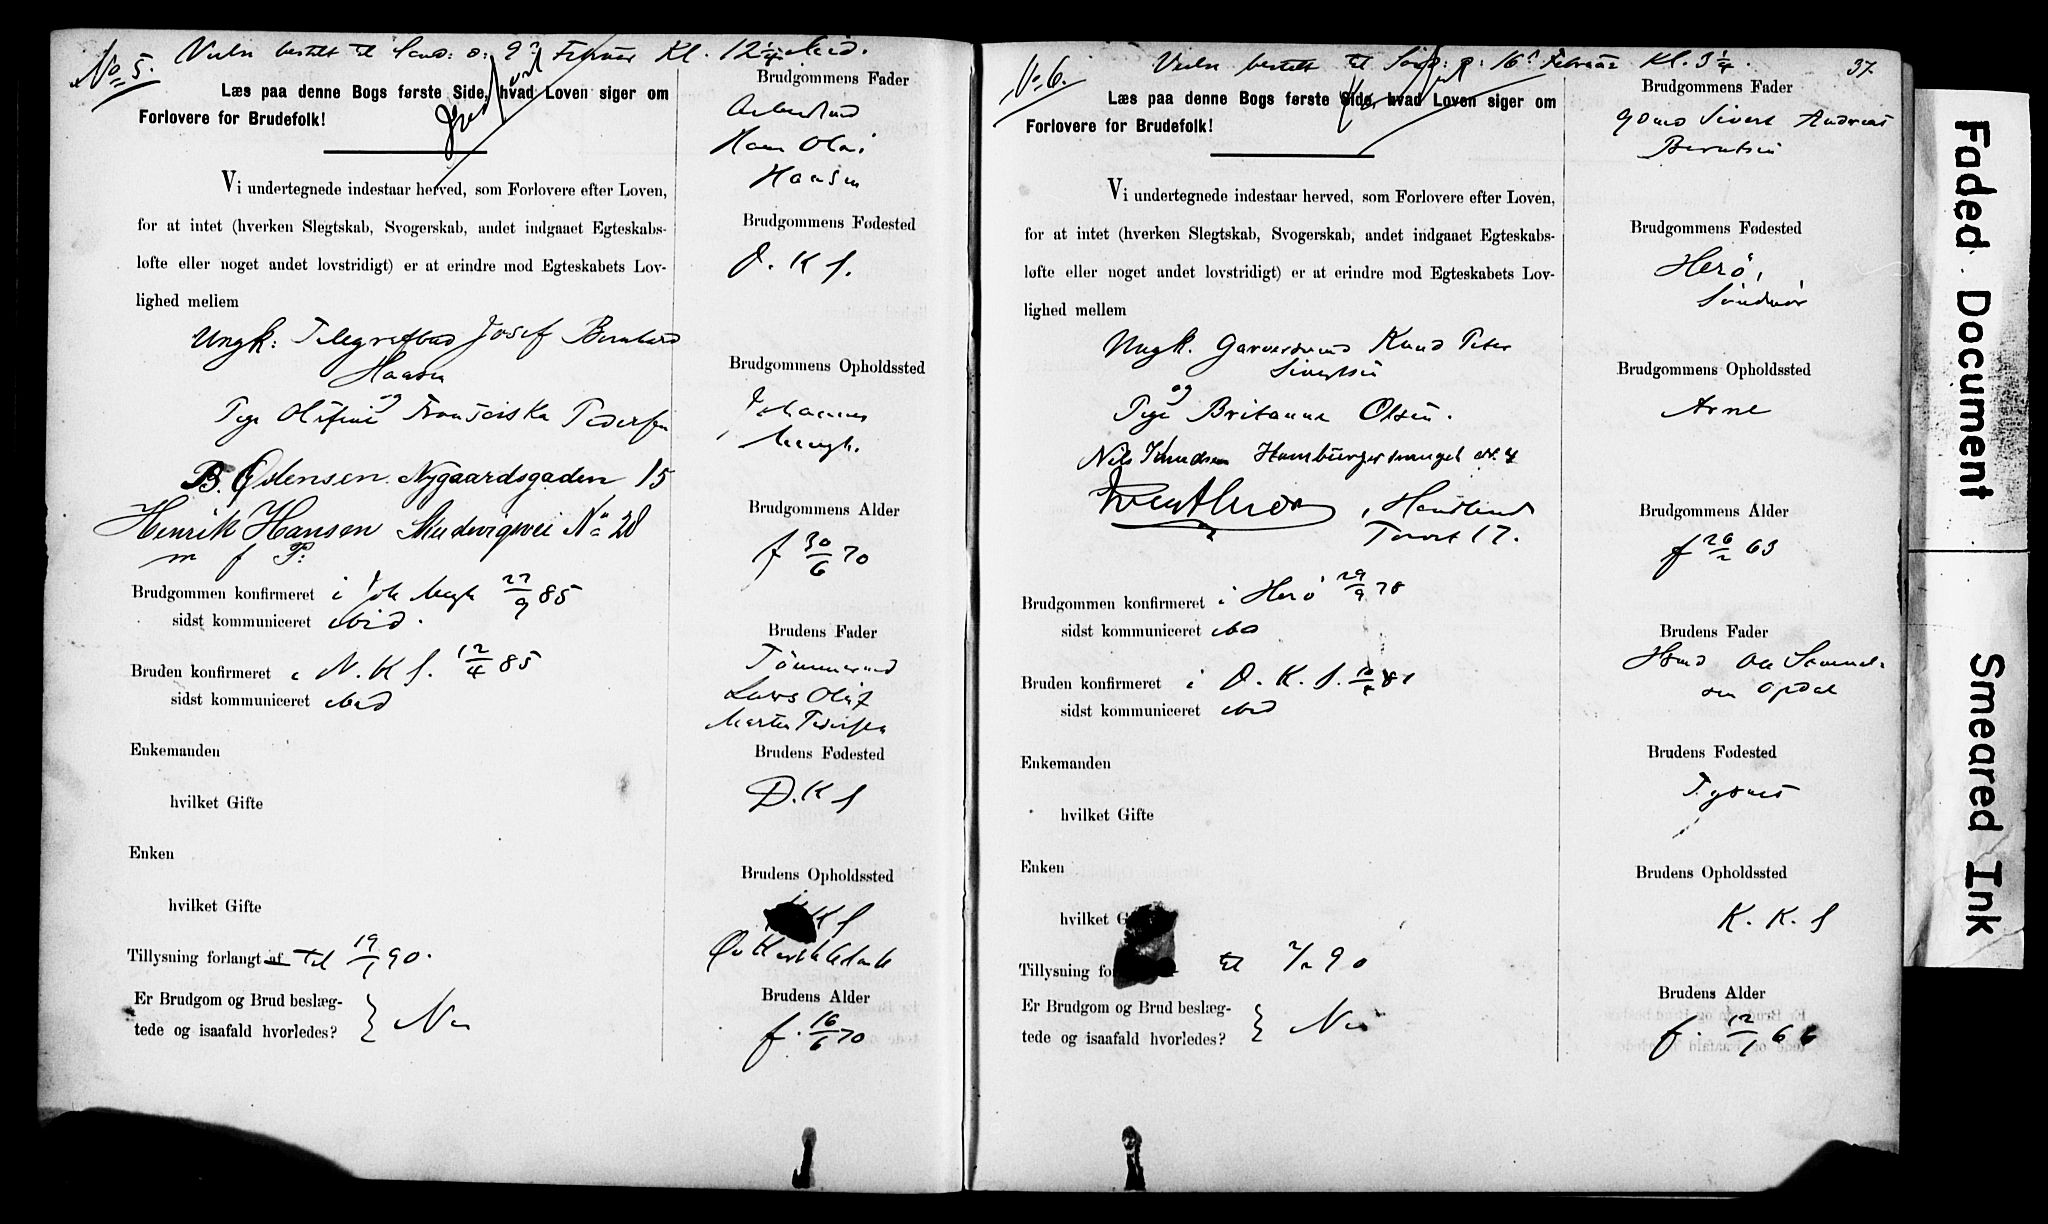 No 5. Vielse bestilt til Sønd: d: 9d Februar Kl. 12 1/4 Mid.
viet
Læs paa denne Bogs første Side, hvad Loven siger om
Forlovere for Brudefolk!
Vi undertegnede indestaar herved, som Forlovere efter Loven,
for at intet (hverken Slegtskab, Svogerskab, andet indgaaet Egteskabs-
løfte eller noget andet lovstridigt) er at erindre mod Egteskabets Lov-
lighed mellem
Ungk: Telegrafbud Josef Bernhard
Hansen
og
Pige Olefine Franciska Pedersen
B. Østensen. Nygaardsgaden 15
Henrik Hansen No 28
m f P:
Brudgommen konfirmeret i Joh Mengh 27/9 85
sidst kommuniceret ibid.
Bruden konfirmeret i N. K S. 12/4 85
sidst kommuniceret ibid
Enkemanden
hvilket Gifte
Enken
hvilket Gifte
Tillysning forlangt af til 19/1 90.
Er Brudgom og Brud beslæg-
tede og isaafald hvorledes? } Nei
Brudgommens Fader
Arbeidsmd
Hans Olai
Hansen
Brudgommens Fødested
D. K S.
Brudgommens Opholdssted
Johannes
Mengh.
Brudgommens Alder
f 30/6 70
Brudens Fader
Tømmermd
Lars Olai
Martin Pedersen
Brudens Fødested
D. K S
Brudens Opholdssted
K S
Brudens Alder
f. 16/6 70
No 6. Vielse bestilt til Sønd: d: 16d Februar Kl. 3 1/4.
37
Læs paa denne Bogs første Side, hvad Loven siger om
Forlovere for Brudefolk!
Vi undertegnede indestaar herved, som Forlovere efter Loven,
for at intet (hverken Slegtskab, Svogerskab, andet indgaaet Egteskabs-
løfte eller noget andet lovstridigt) er at erindre mod Egteskabets Lov-
lighed mellem
Ungk. Garversvend Knud Peter
Sivertsen
og
Pige Britanna Olsen.
Nils Knudsen Hamburgersmuget No. 4
Torvet 17.
Brudgommen konfirmeret i Herø 29/9 78
sidst kommuniceret ibid
Bruden konfirmeret i D. K. S. 81
sidst kommuniceret ibid
Enkemanden
hvilket Gifte
Enken
hvilket G
Tillysning for til 2/2 90
Er Brudgom og Brud beslæg-
tede og isaafald hvorledes? } Nei
Brudgommens Fader
Gbmd Sivert Andreas
Berntsen
Brudgommens Fødested
Herø,
Søndmør
Brudgommens Opholdssted
Arne
Brudgommens Alder
f 26/2 63
Brudens Fader
Hsmd Ole Samuel-
sen Opdal
Brudens Fødested
Tysnes
Brudens Opholdssted
K. K. S
Brudens Alder
f. 12/1 66
Faded Document
Smeared Ink